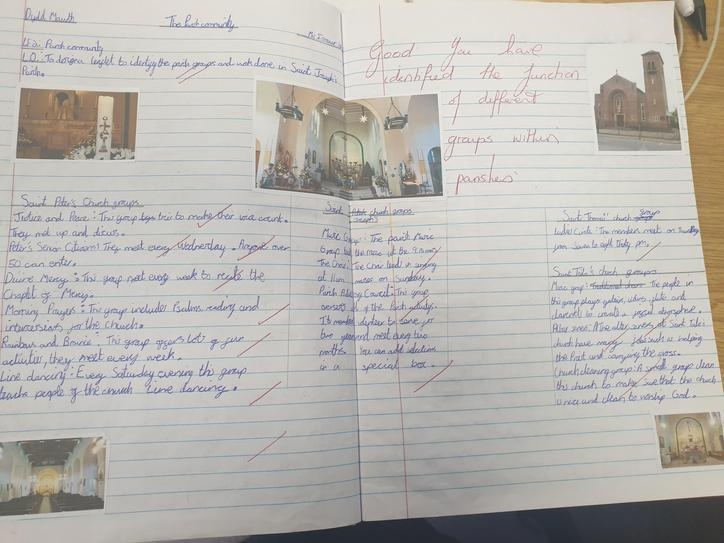 The Parish community
L.F.: Parish community
L.O.: To design a leaflet to identify the parish groups and work done in Saint Joseph's
Parish.
Good you have
identified the function
of different
groups within
parishes
Saint Peter's Church groups
Justice and Peace: This group tries to make their voice count.
They met up and discus.
Peter's Senior Citizens: They meet every Wednesday. Anyone over
50 can enter.
Divine Mercy: This group meet every week to recite the
Chaplet of Mercy.
Morning Prayer: The group includes Psalms, reading and
intercessions for the church.
Rainbows and Brownie: This group offers lots of fun
activities, they meet every week.
Line dancing: Every Saturday evening this group
teachs people of the church Line dancing.
Saint church groups
Music Group: The parish Music
Group lead the music at the
The Choir: The Choir lead in singing
at 11am masses on Sunday.
Parish Advisory Council: This group
oversees all of the Parish activity.
Its members
two years and meet every two
months
in a special box.
Saint church group
Ladies Circle: The members meet on
Saint church groups
Music group: The people in
this group plays guitars, flute and
clarinet to
church have many jobs such as helping
the Priest and carrying the cross.
Church cleaning group: A small group clean
this church to make sure that the church
is nice and clean to worship God.